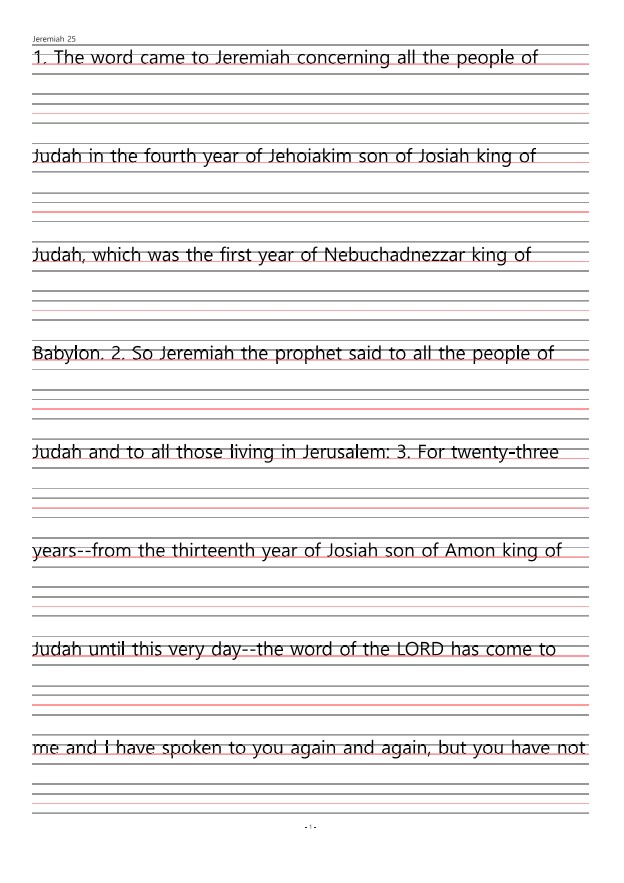 Jeremiah 25
1. The word came to Jeremiah concerning all the people of
Judah in the fourth year of Jehoiakim son of Josiah king of
Judah, which was the first year of Nebuchadnezzar king of
Babylon. 2. So Jeremiah the prophet said to all the people of
Judah and to all those living in Jerusalem: 3. For twenty-three
years--from the thirteenth year of Josiah son of Amon king of
Judah until this very day--the word of the LORD has come to
me and I have spoken to you again and again, but you have not
- 1 -